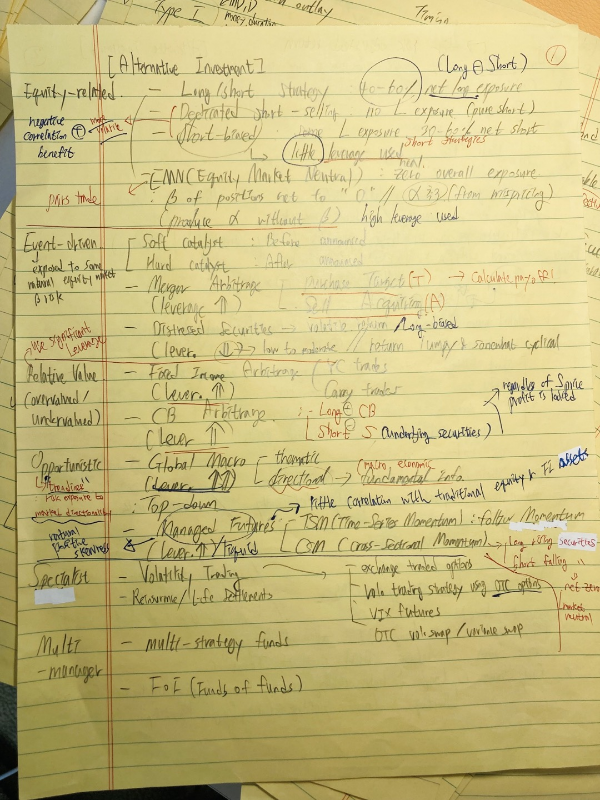 Type I
①
[Alternative Investment]
(Long ⊖ Short)
Equity-related
- Long/short strategy : 40-60% net long exposure
- Dedicated short-selling : no L exposure (pure short)
- Short-biased L exposure 30-60% net short
↳ little leverage used
Short strategies
negative
correlation ⊕
benefit
most
volatile
- EMN (Equity Market Neutral) : zero overall exposure
: β of positions net to "0" // (from mispricing)
(produce α without β) high leverage used
pairs trade
Event-driven
exposed to some
natural equity market
β risk
Soft catalyst : Before announced
Hard catalyst : After announced
- Merger Arbitrage
(leverage ⇈)
Purchase Target (T) → Calculate payoff
Sell Acquiring (A)
- Distressed Securities → Long-biased
(lever. → low to moderate // return lumpy & somewhat cyclical
use significant
leverage
Relative Value
(overvalued/
undervalued)
- Fixed Income Arbitrage
(lever. ⇈)
YC trades
Carry trades
- CB Arbitrage
(lever ⇈)
: Long ⊕ CB
Short ⊖ S (underlying securities)
regardless of S price
profit is locked
Opportunistic
"trendiness"
: risk exposure to
market directionality
- Global Macro
(lever. ⇈)
: Top-down
thematic
directional → fundamental info
(macro, economic
little correlation with traditional equity & FI assets
- Managed Futures
(lever. ↑)/liquid
TSM (Time-Series Momentum) : follow Momentum
CSM (Cross-Sectional Momentum) → Long rising securities
Short falling "
net zero
market
neutral
natural
positive
skewness
Specialist
- Volatility Trading
- Reinsurance/Life Settlements
exchange traded options
vola trading strategy using OTC options
VIX futures
OTC vol. swap/variance swap
Multi
-manager
- multi-strategy funds
- FoF (Funds of funds)